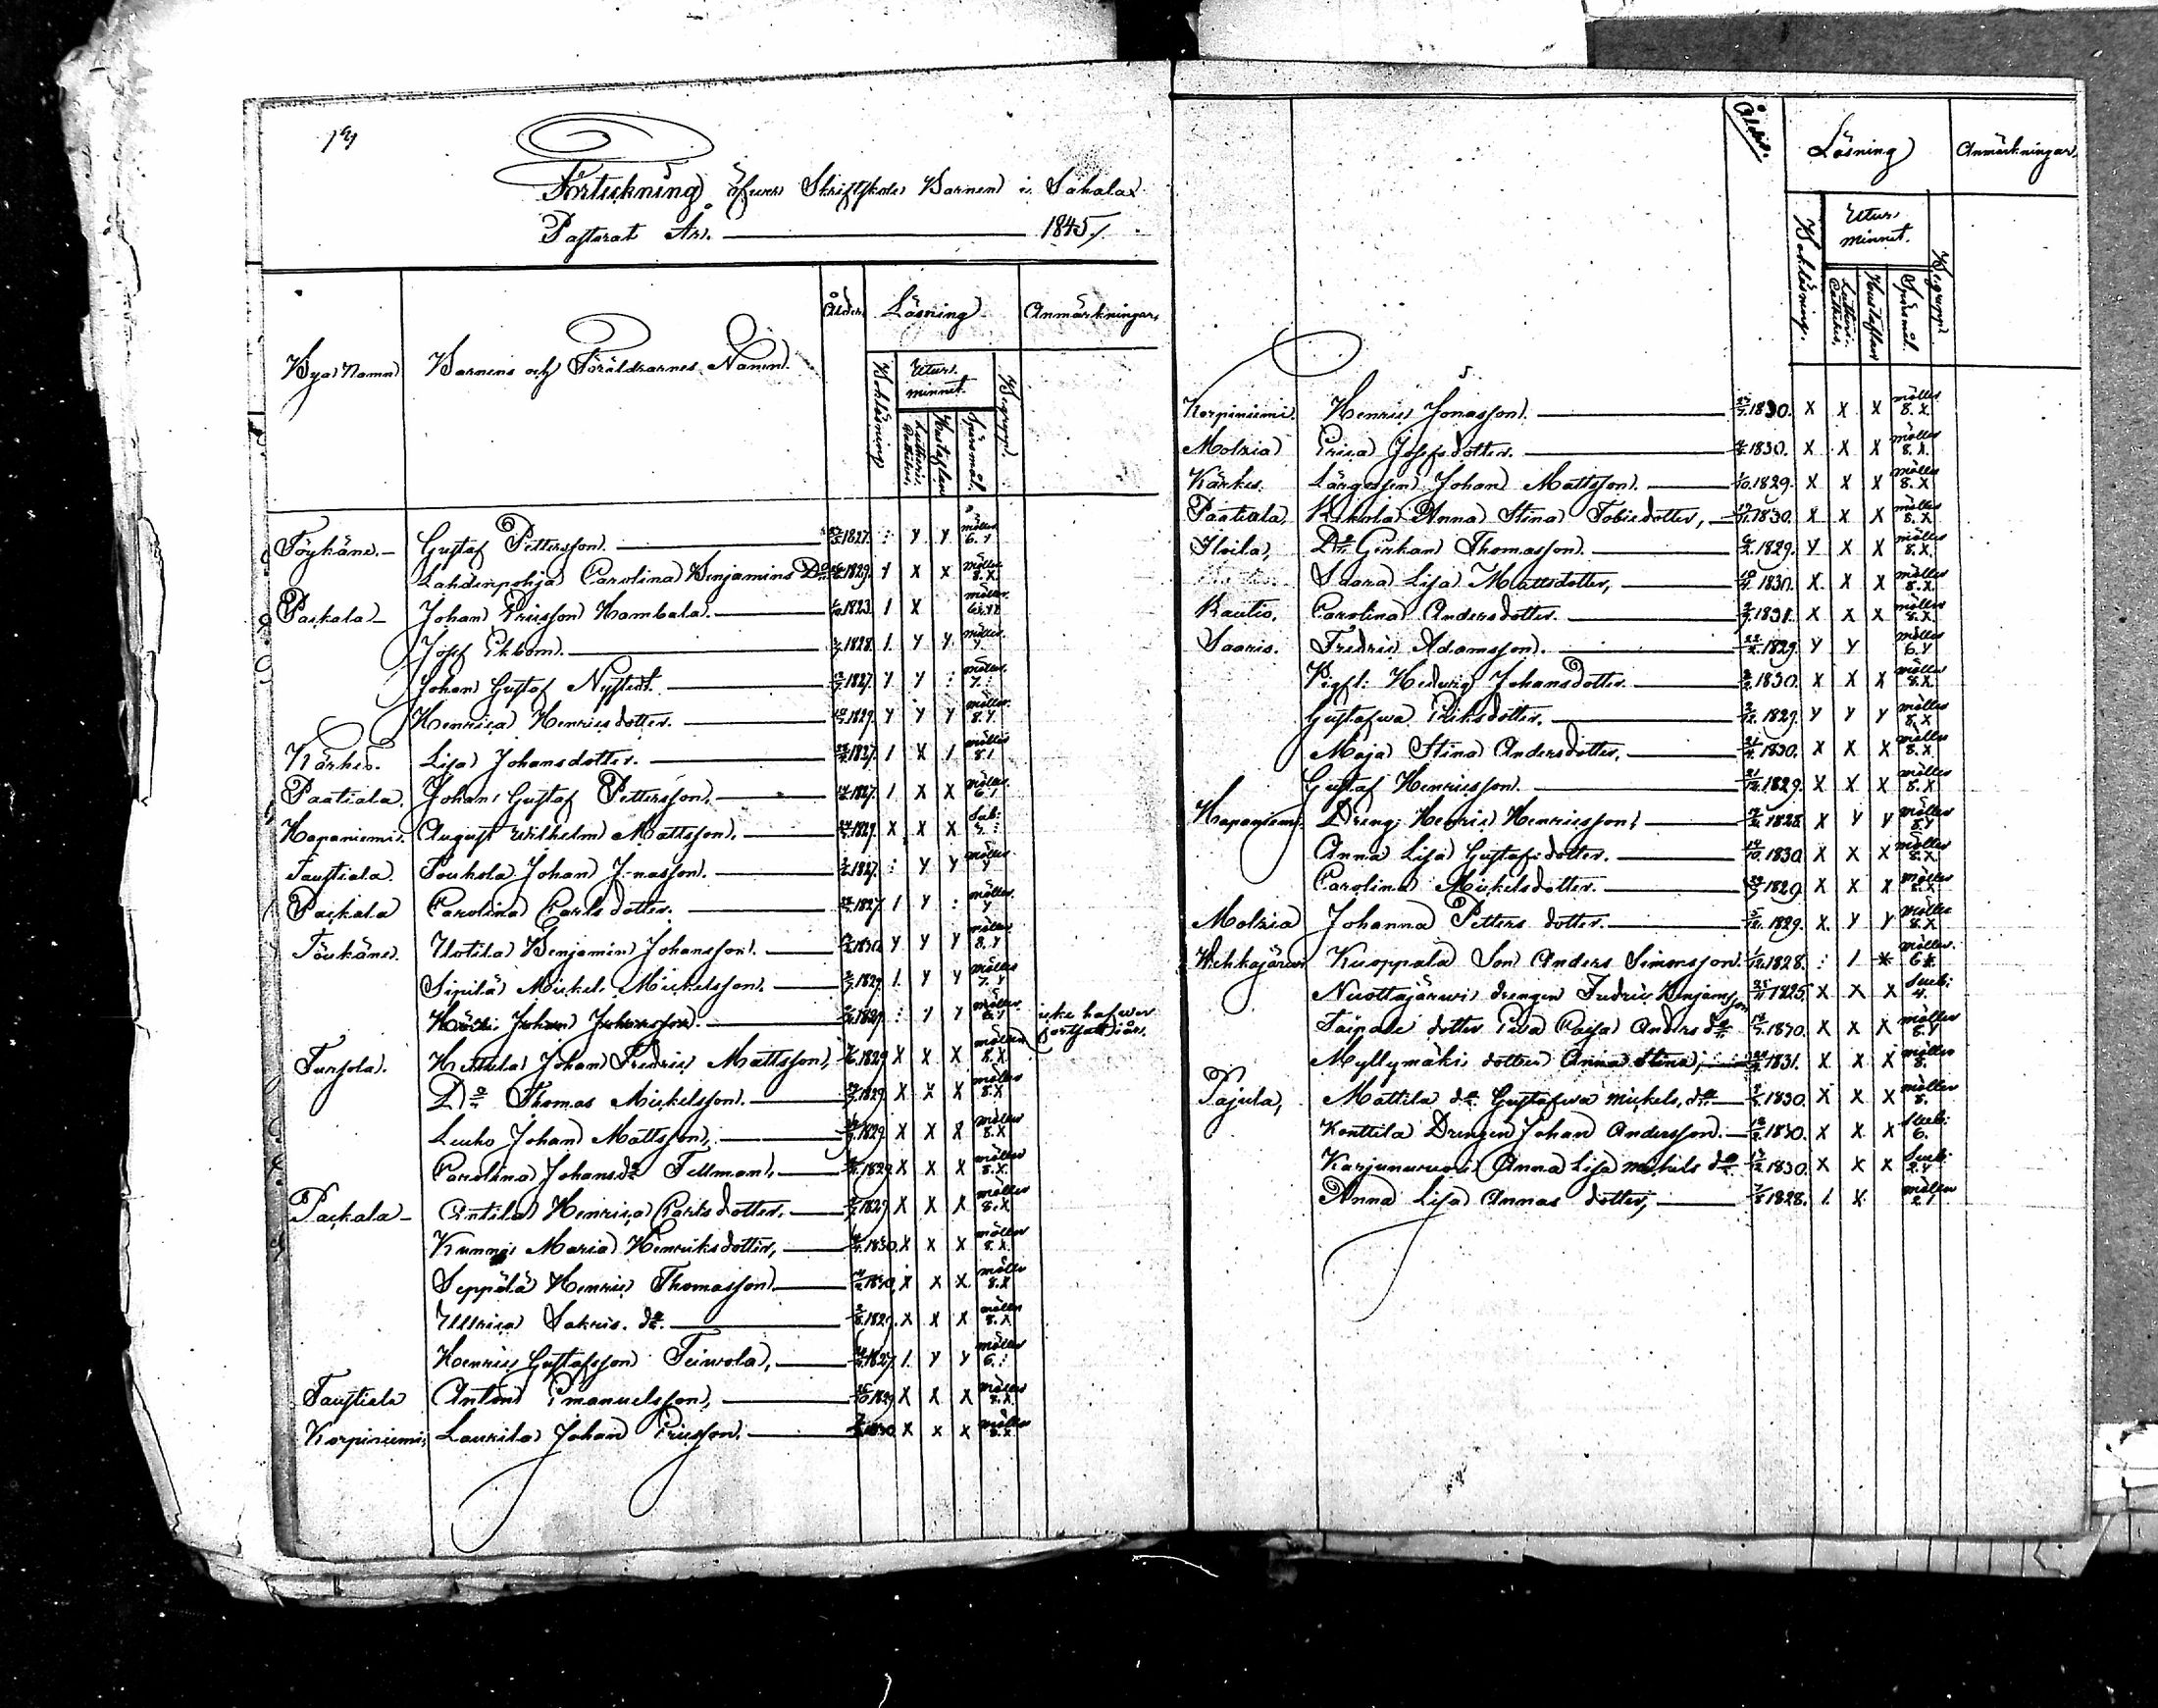 Förteckning öfwer Skriftskole Barnen i Sahalax
Pastorat År. 1845.
Bya Namn Barnens och Föräldrarnes Namn. Ålder Läsning Anmärkningar.
Bokläsning Utur minnet. Begrepp.
Lutheri Cathches. Hustaflan Spörsmål.
Töykäne. Gustaf Pettersson. 1827. : y y möller 6. y
Lahdenpohja Carolina Benjamins Dr 1829. y x x möller 8. x
Packala Johan Ericsson Hambala. 1823. 1 x möller
Josef Ekbom. 1828. 1 y y möller
Johan Gustaf Nystedt. 1827. y y : möller 7. :
Henrica Henricsdotter. 1829. y y y möller 8. y.
Kärkes. Lisa Johansdotter. 1827. 1 x 1 möller 8. 1
Paatiala. Johan Gustaf Pettersson. 1827. 1 x x möller 6. 1
Hapaniemi. August Wilhelm Mattsson. 1829. x x x Sub:
Taustiala. Johan Jonasson. 1827. : y y möller y
Packala Carolina Carls dotter. 1827. 1 y : möller y
Töukäne. Uotila Benjamin Johansson. 1830 y y y möller 8. y
Sipilä Mickel Mickelsson. 1829. 1. y y möller 7. y
Johan Johansson. 1829. : y y möller 6. y icke hafwer
fortsatt i år.
Tursola. Hettula Johan Fredric Mattsson, 1829 x x x möller 8. x
Do Thomas Mickelsson. 1829 x x x möller 8. x
Leuho Johan Mattsson, 1829 x x x möller 8. x
Carolina Johansdr Tellman. 1829 x x x möller 8. x
Packala Antila Henrica Carls dotter. 1829 x x x möller 8. x
Kunnas Maria Henriksdotter, 1830. x x x möller 8. x
Seppälä Henric Thomasson. 1830, x x x möller 8. x
Ullrica Sakris. dr. 1829. x x x möller 8. x
Henric Gustafsson Teiwola, 1827. 1. y y möller 6. :
Taustiala Anton Emanuelsson, 1829 x x x möller 8. x
Korpiniemi, Laurila Johan Ericsson. 1830 x x x möller 8. x
Ålder. Läsning Anmärkningar.
Bokläsning. Utur minnet. Begrepp.
Lutheri Cathches. Hustaflan Spörsmål
Korpiniemi. Henric Jonasson. 1830. x x x möller 8. x
Molzia Erica Josefsdotter. 1830. x x x möller 8. x.
Kärkes. Johan Mattsson. 1829. x x x möller 8. x
Paatiala, Rekola Anna Stina Tobiedotter, 1830. x x x möller 8. x
Iloila, Thomasson. 1829. y x x möller 8. x
Saara Lisa Mattsdotter, 1830. x x x möller 8. x
Rautio. Carolina Andersdotter. 1831. x x x möller 8. x
Saaris. Fredric Adamsson. 1829. y y möller 6. y
Pigf: Hedvig Johansdotter. 1830. x x x möller 8. x
Gustafwa Eriksdotter. 1829. y y y möller 8. x
Maja Stina Andersdotter, 1830. x x x möller 8. x
Gustaf Henricsson. 1829. x x x möller 8. x
Hapaniemi. Dreng: Henric Henricsson, 1828 x y y möller 8. y
Anna Lisa Gustafsdotter. 1830 x x x möller 8. x
Carolina Mickelsdotter. 1829 x x x möller 8. x
Molzia Johanna Petters dotter. 1829. x. y y möller 8. x
Wehkajärwi Kuoppala Son Anders Simonsson. 1828. : 1 möller 6
Nuottajärwi drengen Fredric Benjamsson 1825. x x x Sub: 4.
Taipale dotter Ewa Caisa Anders dr 1830. x x x möller 8. y
Myllymäki dotter Anna Stina, 1831. x x x möller 8.
Pajula, Mattila dr Gustafwa mickels. dr 1830. x x x möller 8.
Konttila Drengen Johan Andersson. 1830. x x x Sub: 6.
Anna Lisa mickels dr 1830. x x x Sub:
Anna Lisa Annas dotter, 1828. 1. x möller 2. 1